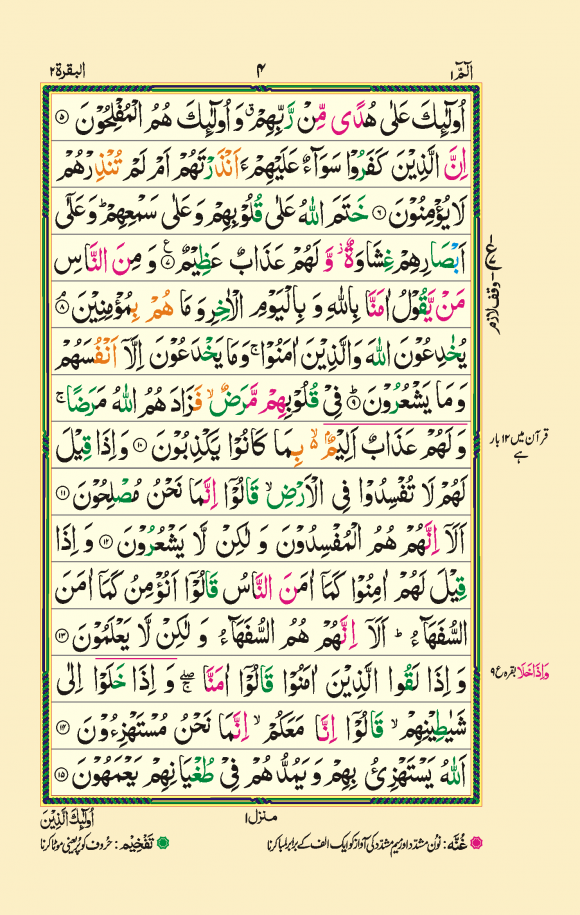 الٓمّٓ ۱ ۴ البقرة ۲
اُولٰٓئِكَ عَلٰى هُدًى مِّنْ رَّبِّهِمْ ۙ وَ اُولٰٓئِكَ هُمُ الْمُفْلِحُوْنَ ۵
اِنَّ الَّذِيْنَ كَفَرُوْا سَوَآءٌ عَلَيْهِمْ ءَاَنْذَرْتَهُمْ اَمْ لَمْ تُنْذِرْهُمْ
لَا يُؤْمِنُوْنَ ۶ خَتَمَ اللّٰهُ عَلٰى قُلُوْبِهِمْ وَ عَلٰى سَمْعِهِمْ ؕ وَ عَلٰٓى
اَبْصَارِهِمْ غِشَاوَةٌ ۫ وَّ لَهُمْ عَذَابٌ عَظِيْمٌ ۷ ع وَ مِنَ النَّاسِ
مَنْ يَّقُوْلُ اٰمَنَّا بِاللّٰهِ وَ بِالْيَوْمِ الْاٰخِرِ وَ مَا هُمْ بِمُؤْمِنِيْنَ ۘ ۸
يُخٰدِعُوْنَ اللّٰهَ وَ الَّذِيْنَ اٰمَنُوْا ۚ وَ مَا يَخْدَعُوْنَ اِلَّآ اَنْفُسَهُمْ
وَ مَا يَشْعُرُوْنَ ؕ ۹ فِيْ قُلُوْبِهِمْ مَّرَضٌ ۙ فَزَادَهُمُ اللّٰهُ مَرَضًا ۚ
وَ لَهُمْ عَذَابٌ اَلِيْمٌۢ ۙ۬ بِمَا كَانُوْا يَكْذِبُوْنَ ۱۰ وَ اِذَا قِيْلَ
لَهُمْ لَا تُفْسِدُوْا فِي الْاَرْضِ ۙ قَالُوْٓا اِنَّمَا نَحْنُ مُصْلِحُوْنَ ۱۱
اَلَآ اِنَّهُمْ هُمُ الْمُفْسِدُوْنَ وَ لٰكِنْ لَّا يَشْعُرُوْنَ ۱۲ وَ اِذَا
قِيْلَ لَهُمْ اٰمِنُوْا كَمَآ اٰمَنَ النَّاسُ قَالُوْٓا اَنُؤْمِنُ كَمَآ اٰمَنَ
السُّفَهَآءُ ؕ اَلَآ اِنَّهُمْ هُمُ السُّفَهَآءُ وَ لٰكِنْ لَّا يَعْلَمُوْنَ ۱۳
وَ اِذَا لَقُوا الَّذِيْنَ اٰمَنُوْا قَالُوْٓا اٰمَنَّا ۖۚ وَ اِذَا خَلَوْا اِلٰى
شَيٰطِيْنِهِمْ ۙ قَالُوْٓا اِنَّا مَعَكُمْ ۙ اِنَّمَا نَحْنُ مُسْتَهْزِءُوْنَ ۱۴
اَللّٰهُ يَسْتَهْزِئُ بِهِمْ وَ يَمُدُّهُمْ فِيْ طُغْيَانِهِمْ يَعْمَهُوْنَ ۱۵
وقف لازم
قرآن میں ۱۲ بار
ہے
وَاِذَاخَلَا بقره ع۹
منزل ۱
اُولٰٓئِكَ الَّذِيْنَ
غُنَّه: نُون مشدّد اور میم مشدّد کی آواز کو ایک الف کے برابر لمبا کرنا تَفْخِيْم: حُروف کو پُر یعنی موٹا کرنا